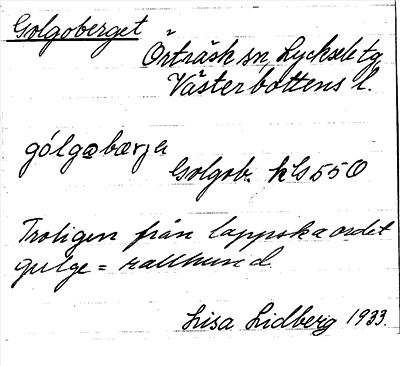 Golgoberget
Örträsk sn, Lycksele tg
Västerbottens l.
gólgabærjə
Golgob. kls 550
Troligen från lappska ordet
gulge = rallhund.
Lisa Lidberg 1933.